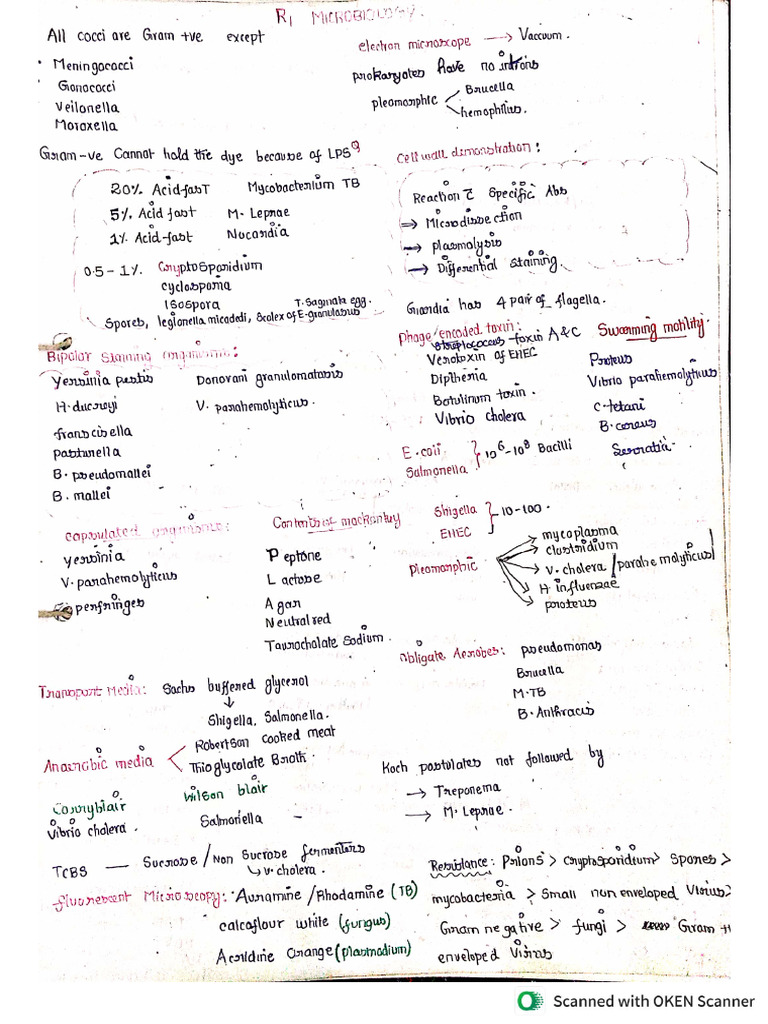 R1 MICROBIOLOGY.
All cocci are Gram +ve except
• Meningococci
Gonococci
Veilonella
Moraxella
electron microscope → Vaccum.
prokaryotes have no introns
pleomorphic < Brucella
hemophilus.
Gram-ve Cannot hold the dye because of LPS Q
20% Acid-fast Mycobacterium TB
5% Acid fast M. Leprae
1% Acid-fast Nocardia
0.5 - 1% Cryptosporidium
cyclospora
Isospora T. Saginata egg.
Spores, legionella micadedi, Scolex of E-granulosus
Cell wall demonstration:
Reaction c̄ Specific Abs
⇒ Microdissection
→ plasmolysis
→ Differential staining.
Giardia has 4 pair of flagella.
Bipolar Staining organisms:
Yersinia pestis Donovani granulomatosis
H. ducreyi V. parahemolyticus.
francisella
pasturella
B. pseudomallei
B. mallei
Phage/encoded toxin:
Streptococcus toxin A & C
Verotoxin of EHEC
Diptheria
Botulinum toxin.
Vibrio cholera
Swarming motility.
Proteus
Vibrio parahemolyticus
C-tetani
B. cereus
Serratia
E. coli
Salmonella } 10⁶-10⁸ Bacilli
Shigella
EHEC } 10-100.
Capsulated organisms:
Yersinia
V. parahemolyticus
perfringes
Contents of mackonkey
Peptone
Lactose
Agar
Neutral red
Taurocholate Sodium.
Pleomorphic
mycoplasma
clostridium
V. cholera / parahemolyticus
H influenzae
proteus
Obligate Aerobes: pseudomonas
Brucella
M. TB
B. Anthracis
Transport Media: Sachs buffered glycerol
↓
Shigella, Salmonella.
Anaerobic media < Robertson Cooked meat
Thioglycolate Broth.
Koch postulates not followed by
→ Treponema
→ M. Leprae.
Carryblair
Vibrio cholera.
Wilson blair
Salmonella
TCBS — Sucrose / Non Sucrose fermenters
↳ V. cholera.
fluorescent Microscopy: Auramine / Rhodamine (TB)
calcaflour white (fungus)
Acridine Orange (plasmodium)
Resistance: Prions > cryptosporidium > Spores >
mycobacteria > Small non enveloped Virus>
Gram negative > fungi > Gram +
enveloped Virus
Scanned with OKEN Scanner